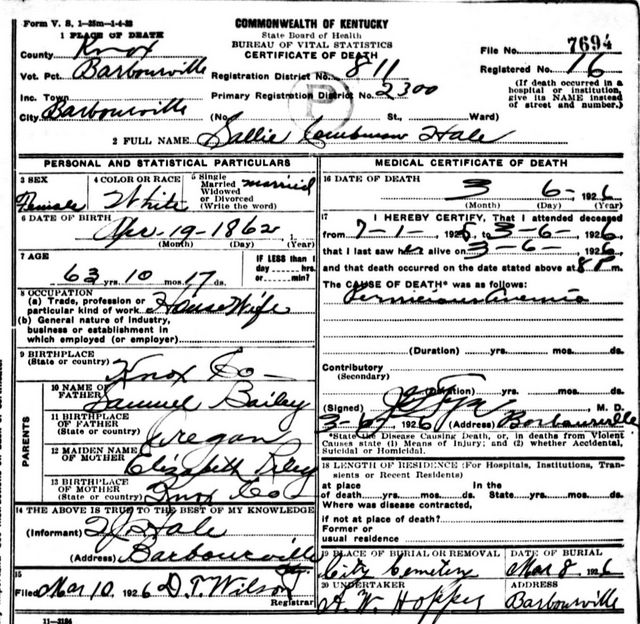 Form V. S. 1—25m—1-4-22
COMMONWEALTH OF KENTUCKY
State Board of Health
BUREAU OF VITAL STATISTICS
CERTIFICATE OF DEATH
1 PLACE OF DEATH
County Knox
Vot. Pct. Barbourville
Inc. Town
City Barbourville
Registration District No. 811
Primary Registration District No. 2300
(No. St., Ward)
File No. 7694
Registered No. 16
(If death occurred in a hospital or institution, give its NAME instead of street and number.)
2 FULL NAME Sallie Hale
PERSONAL AND STATISTICAL PARTICULARS
3 SEX Female
4 COLOR OR RACE White
5 Single Married Widowed or Divorced (Write the word) married
6 DATE OF BIRTH
Apr-19-1862, 1
(Month) (Day) (Year)
7 AGE
63 yrs. 10 mos. 17 ds.
IF LESS than 1 day hrs. or min.?
8 OCCUPATION
(a) Trade, profession or particular kind of work House Wife
(b) General nature of industry, business or establishment in which employed (or employer)
9 BIRTHPLACE
(State or country) Knox Co
PARENTS
10 NAME OF FATHER Samuel Bailey
11 BIRTHPLACE OF FATHER
(State or country)
12 MAIDEN NAME OF MOTHER Elizabeth Riley
13 BIRTHPLACE OF MOTHER
(State or country) Knox Co
14 THE ABOVE IS TRUE TO THE BEST OF MY KNOWLEDGE
(Informant) Hale
(Address) Barbourville
15
Filed Mar 10, 1926 D.T. Wilson
Registrar
11—3184
MEDICAL CERTIFICATE OF DEATH
16 DATE OF DEATH
3 6-, 1926
(Month) (Day) (Year)
17 I HEREBY CERTIFY, That I attended deceased
from 7-1-, 1925, 3-6-, 1926
that I last saw her alive on 3-6-, 1926
and that death occurred on the date stated above at 8 P m.
The CAUSE OF DEATH* was as follows:
Pernicious anemia
(Duration) yrs. mos. ds.
Contributory
(Secondary)
(Duration) yrs. mos. ds.
(Signed) M. D.
3-6, 1926 (Address) Barbourville
*State the Disease Causing Death, or, in deaths from Violent Causes state (1) Means of Injury; and (2) whether Accidental, Suicidal or Homicidal.
18 LENGTH OF RESIDENCE (For Hospitals, Institutions, Transients or Recent Residents)
at place of death yrs. mos. ds. In the State yrs. mos. ds.
Where was disease contracted,
if not at place of death?
Former or
usual residence
19 PLACE OF BURIAL OR REMOVAL
City Cemetery
DATE OF BURIAL
Mar 8, 1926
20 UNDERTAKER
A. W. Hopper
ADDRESS
Barbourville